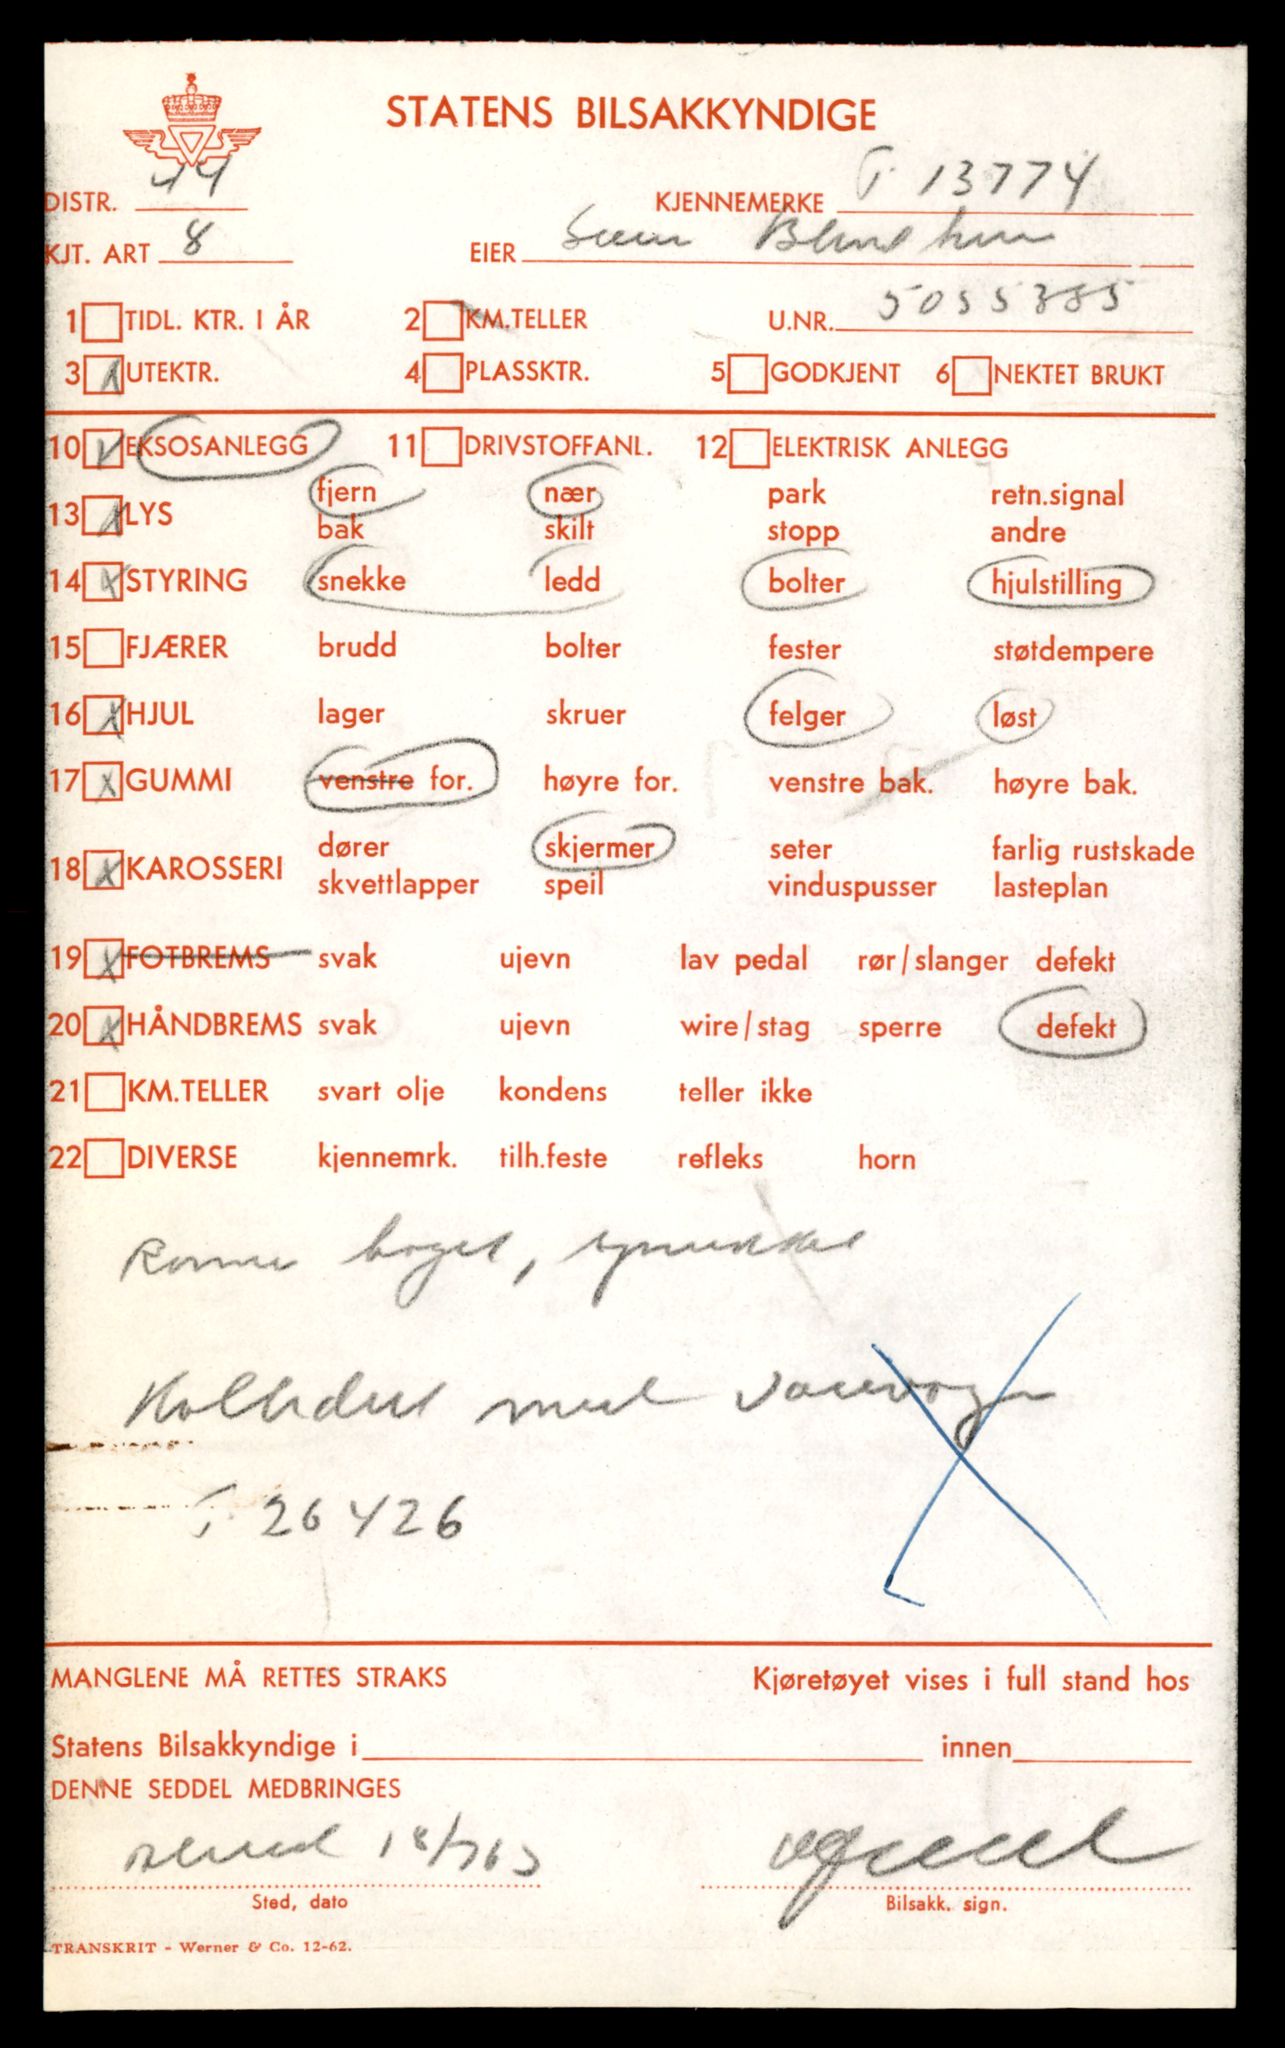 STATENS BILSAKKYNDIGE
DISTR. 14
KJENNEMERKE T 13774
KJT. ART 8
EIER
1 TIDL. KTR. I ÅR 2 KM.TELLER U.NR. 5055385
3 UTEKTR. 4 PLASSKTR. 5 GODKJENT 6 NEKTET BRUKT
10 EKSOSANLEGG 11 DRIVSTOFFANL. 12 ELEKTRISK ANLEGG
fjern nær park retn.signal
13 LYS
bak skilt stopp andre
14 STYRING snekke ledd bolter hjulstilling
15 FJÆRER brudd bolter fester støtdempere
16 HJUL lager skruer felger løst
17 GUMMI venstre for. høyre for. venstre bak. høyre bak.
dører skjermer seter farlig rustskade
18 KAROSSERI
skvettlapper speil vinduspusser lasteplan
19 FOTBREMS svak ujevn lav pedal rør/slanger defekt
20 HÅNDBREMS svak ujevn wire/stag sperre defekt
21 KM.TELLER svart olje kondens teller ikke
22 DIVERSE kjennemrk. tilh.feste refleks horn
Ramme bøyet,
Kollidert med varevogn
T 26426
MANGLENE MÅ RETTES STRAKS Kjøretøyet vises i full stand hos
Statens Bilsakkyndige i innen
DENNE SEDDEL MEDBRINGES
18/7 63
Sted, dato Bilsakk. sign.
TRANSKRIT - Werner & Co. 12-62.